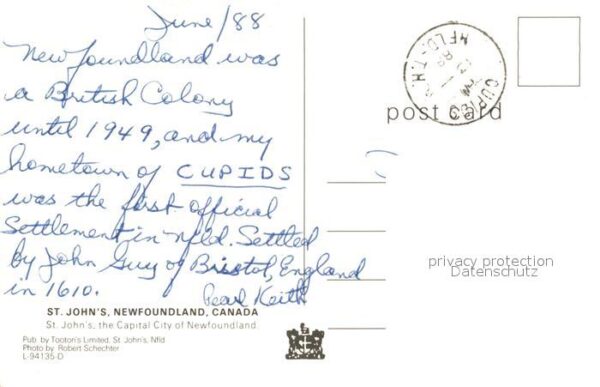 June/88
Newfoundland was
a British Colony
until 1949, and my
hometown of CUPIDS
was the first official
Settlement in Nfld. Settled
by John Guy of Bristol, England
in 1610.
Pearl Keith
ST. JOHN'S, NEWFOUNDLAND, CANADA
St. John's, the Capital City of Newfoundland.
Pub. by Tooton's Limited, St. John's, Nfld
Photo by Robert Schechter
L-94135-D
CUPIDS
NFLD.-T.N.
PM
13
88
post card
privacy protection
Datenschutz